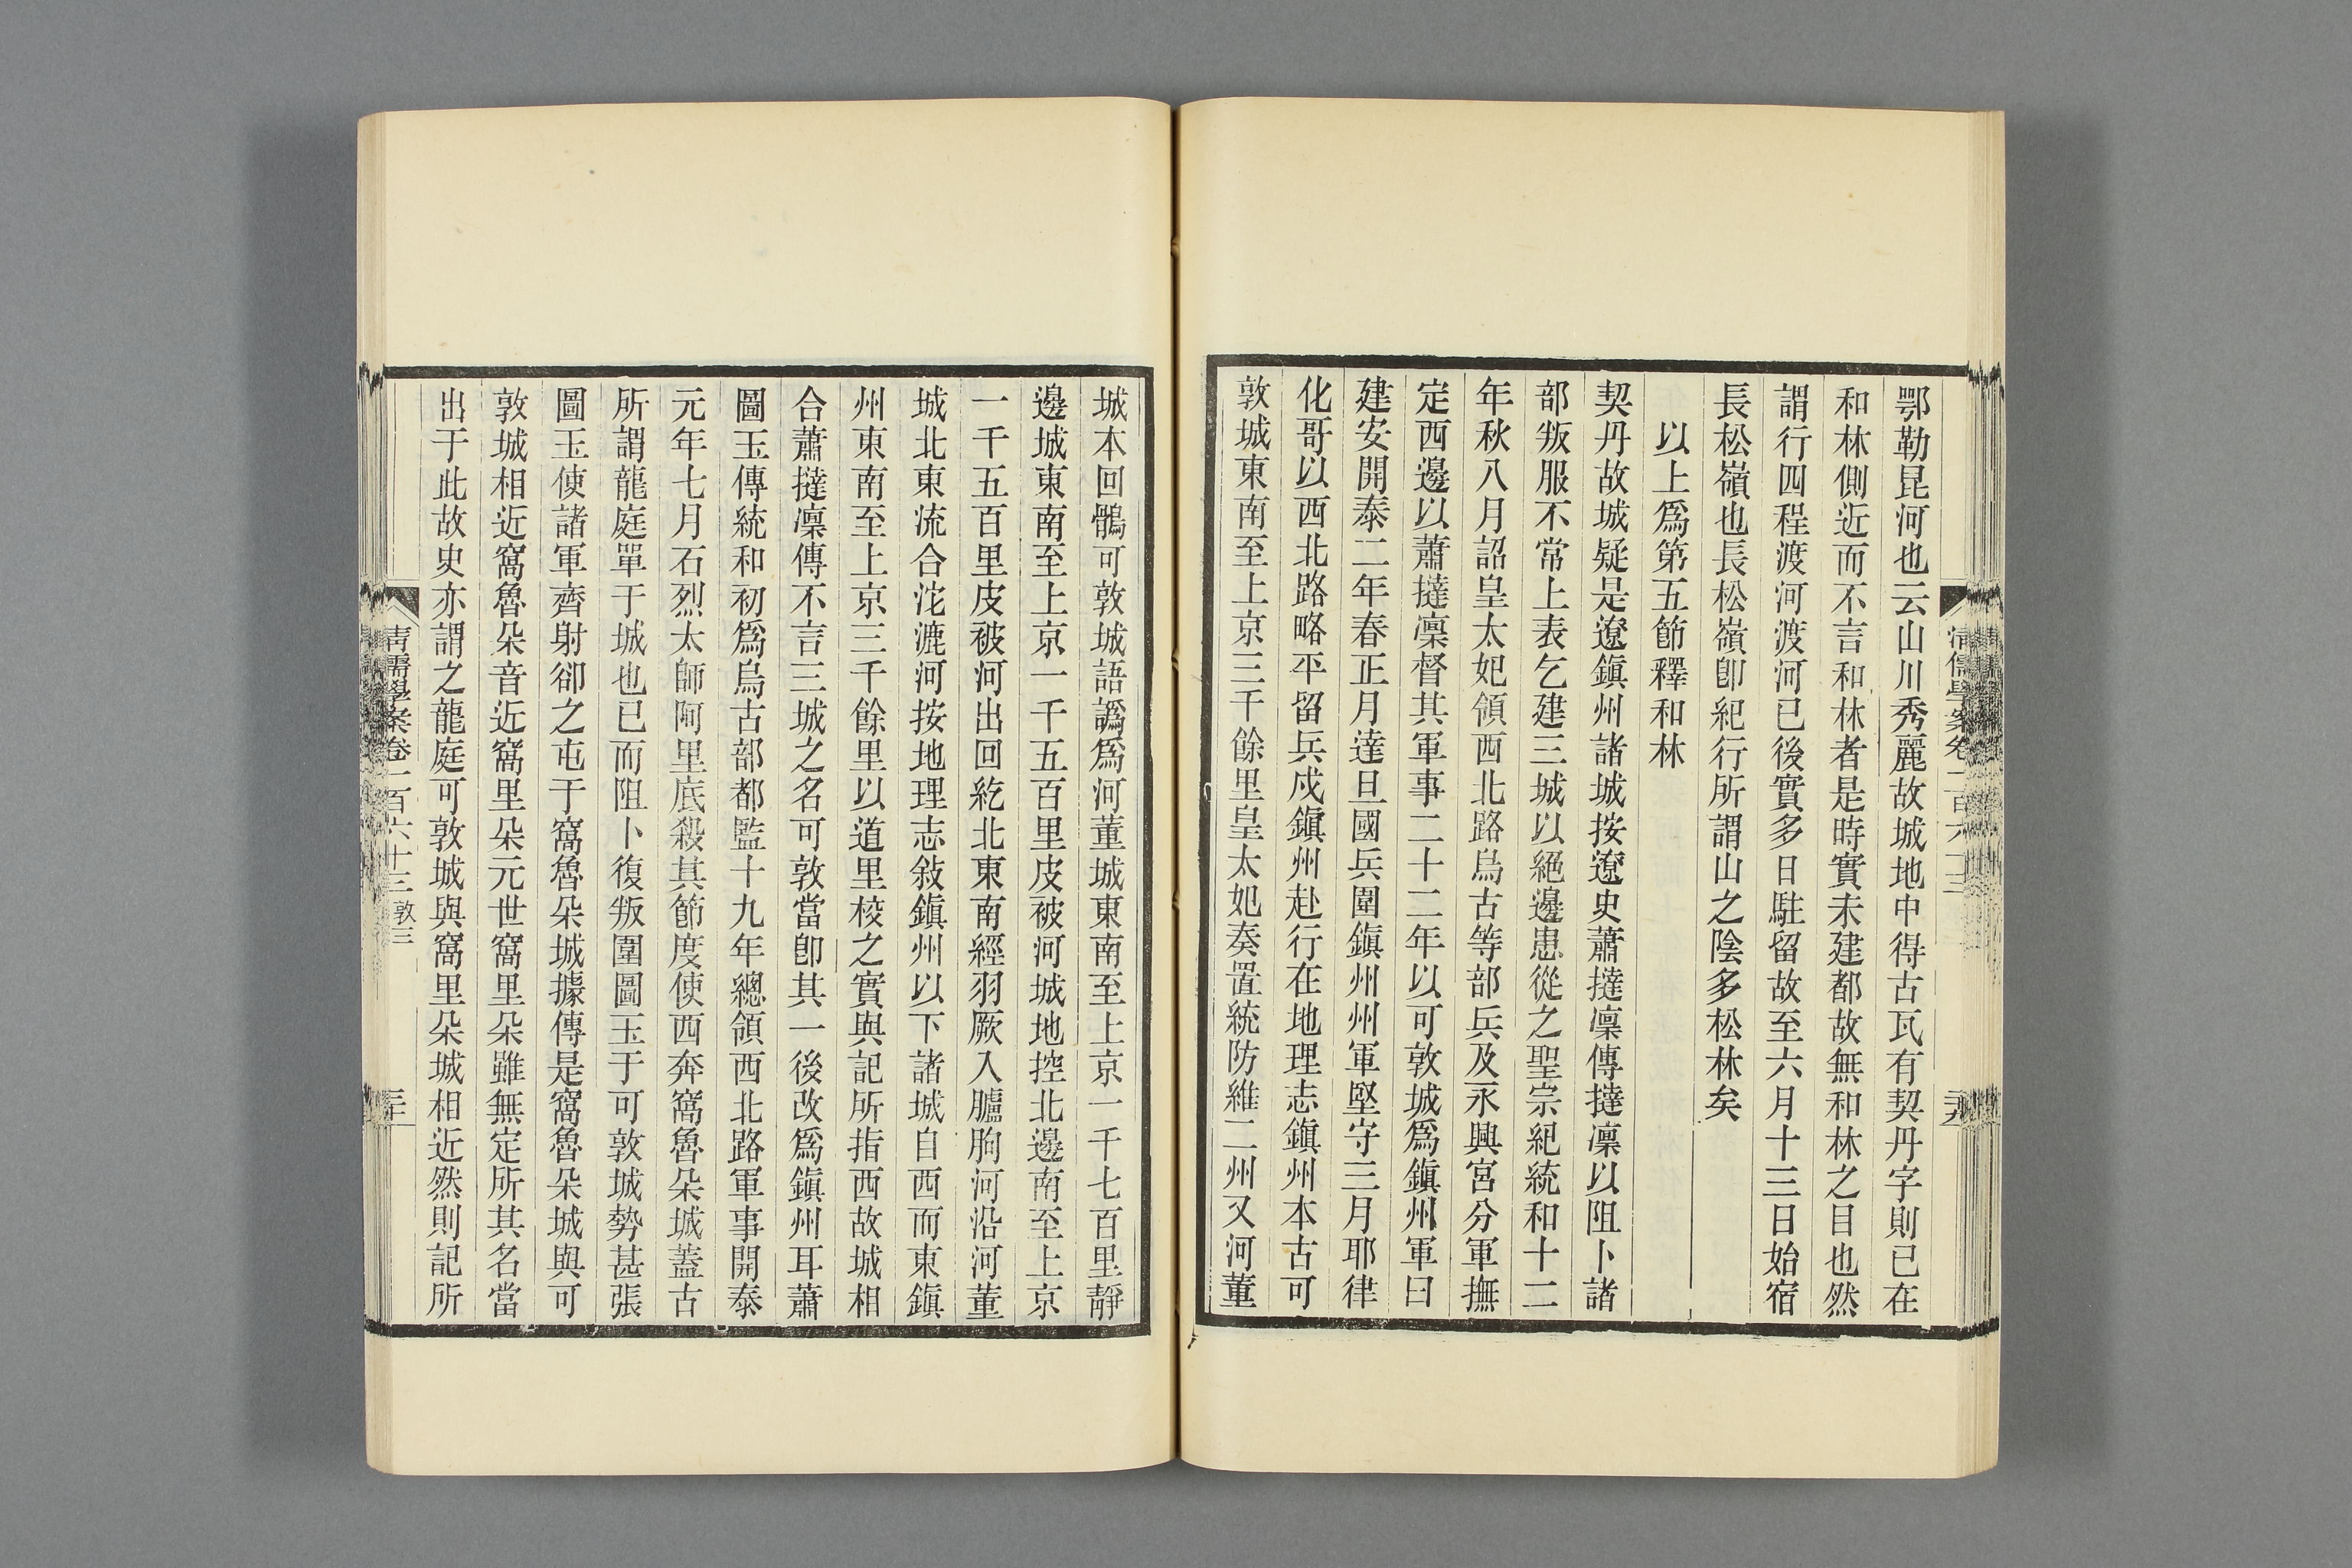 鄂勒昆河也云山川秀麗故城地中得古瓦有契丹字則已在
和林側近而不言和林者是時實未建都故無和林之目也然
謂行四程渡河渡河已後實多日駐留故至六月十三日始宿
長松嶺也長松嶺卽紀行所謂山之陰多松林矣
以上爲第五節釋和林
契丹故城疑是遼鎭州諸城按遼史蕭撻凜傳撻凜以阻卜諸
部叛服不常上表乞建三城以絕邊患從之聖宗紀統和十二
年秋八月詔皇太妃領西北路烏古等部兵及永興宮分軍撫
定西邊以蕭撻凜督其軍事二十二年以可敦城爲鎭州軍曰
建安開泰二年春正月達旦國兵圍鎭州州軍堅守三月耶律
化哥以西北路略平留兵戍鎭州赴行在地理志鎭州本古可
敦城東南至上京三千餘里皇太妃奏置統防維二州又河董
城本回鶻可敦城語譌爲河董城東南至上京一千七百里靜
邊城東南至上京一千五百里皮被河城地控北邊南至上京
一千五百里皮被河出回紇北東南經羽厥入臚朐河沿河董
城北東流合沱漉河按地理志敍鎭州以下諸城自西而東鎭
州東南至上京三千餘里以道里校之實與記所指西故城相
合蕭撻凜傳不言三城之名可敦當卽其一後改爲鎭州耳蕭
圖玉傳統和初爲烏古部都監十九年總領西北路軍事開泰
元年七月石烈太師阿里底殺其節度使西奔窩魯朵城蓋古
所謂龍庭單于城也已而阻卜復叛圍圖玉于可敦城勢甚張
圖玉使諸軍齊射卻之屯于窩魯朵城據傳是窩魯朵城與可
敦城相近窩魯朵音近窩里朵元世窩里朵雖無定所其名當
出于此故史亦謂之龍庭可敦城與窩里朵城相近然則記所
清儒學案卷一百六十三 敦三